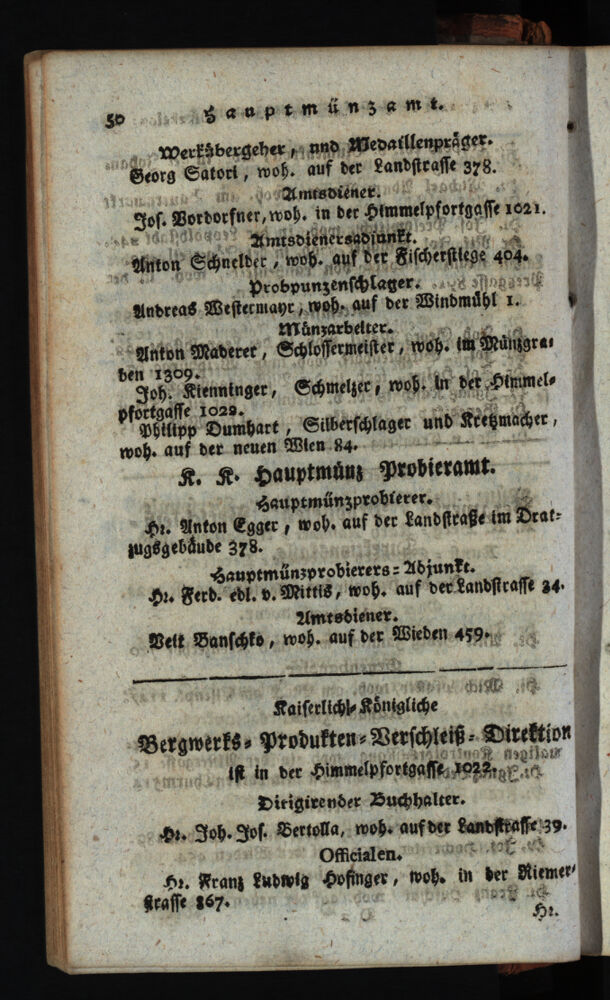 50 Hauptmünzamt.
Werkübergeher, und Medaillenpräger.
Georg Satori, woh. auf der Landstrasse 378.
Amtsdiener.
Jos. Vordorfner, woh. in der Himmelpfortgasse 1021.
Amtsdienersadjunkt.
Anton Schneider, woh. auf der Fischerstiege 404.
Probpunzenschlager.
Andreas Westermayr, woh. auf der Windmühl 1.
Münzarbeiter.
Anton Maderer, Schlossermeister, woh. im Münzgra-
ben 1309.
Joh. Kienninger, Schmelzer, woh. in der Himmel-
pfortgasse 1022.
Philipp Dumhart, Silberschlager und Kretzmacher,
woh. auf der neuen Wien 84.
K. K. Hauptmünz Probieramt.
Hauptmünzprobierer.
Hr. Anton Egger, woh. auf der Landstraße im Drat-
zugsgebäude 378.
Hauptmünzprobierers-Adjunkt.
Hr. Ferd. edl. v. Mittis, woh. auf der Landstrasse 34.
Amtsdiener.
Veit Banschko, woh. auf der Wieden 459.
Kaiserlich-Königliche
Bergwerks-Produkten-Verschleiß-Direktion
ist in der Himmelpfortgasse 1022.
Dirigirender Buchhalter.
Hr. Joh. Jos. Bertolla, woh. auf der Landstrasse 39.
Officialen.
Hr. Franz Ludwig Hofinger, woh. in der Riemer-
strasse 867.
Hr.